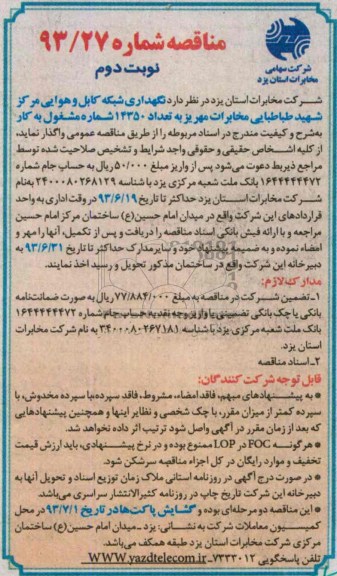 مناقصه شماره ۹۳/۲۷
نوبت دوم
شرکت سهامی
مخابرات استان یزد
شرکت مخابرات استان یزد در نظر دارد نگهداری شبکه کابل و هوایی مرکز
شهید طباطبایی مخابرات مهریز به تعداد ۱۴۳۵۰ شماره مشغول به کار
به‌شرح و کیفیت مندرج در اسناد مربوطه را از طریق مناقصه عمومی واگذار نماید،
از کلیه اشخاص حقیقی و حقوقی واجد شرایط و تشخیص صلاحیت شده توسط
مراجع ذیربط دعوت می‌شود پس از واریز مبلغ ۵۰/۰۰۰ ریال به حساب جام شماره
۱۶۴۴۴۴۴۴۷۲ بانک ملت شعبه مرکزی یزد با شناسه ۲۴۰۰۰۸۰۲۶۸۱۲۹ به‌نام
شرکت مخابرات استان یزد حداکثر تا تاریخ ۹۳/۶/۱۹ در وقت اداری به واحد
قراردادهای این شرکت واقع در میدان امام حسین(ع) ساختمان مرکز امام حسین
مراجعه و با ارائه فیش بانکی اسناد مناقصه را دریافت و پس از تکمیل، آنها را مهر و
امضاء نموده و به ضمیمه پیشنهاد خود و سایر مدارک حداکثر تا تاریخ ۹۳/۶/۳۱ به
دبیرخانه این شرکت واقع در ساختمان مذکور تحویل و رسید اخذ نمایند.
مدارک لازم:
۱ـ تضمین شرکت در مناقصه به مبلغ ۷۷/۸۸۴/۰۰۰ ریال به صورت ضمانت‌نامه
بانکی یا چک بانکی تضمینی یا واریز وجه نقد به حساب جام شماره ۱۶۴۴۴۴۴۴۷۲
بانک ملت شعبه مرکزی یزد با شناسه ۳۴۰۰۰۸۰۲۶۷۱۸۱ به نام شرکت مخابرات
استان یزد.
۲ـ اسناد مناقصه
قابل توجه شرکت کنندگان:
* به پیشنهادهای مبهم، فاقد امضاء، مشروط، فاقد سپرده،با سپرده مخدوش، با
سپرده کمتر از میزان مقرر، با چک شخصی و نظایر اینها و همچنین پیشنهادهایی
که بعد از زمان مقرر در آگهی واصل شود ترتیب اثر داده نخواهد شد.
* هرگونه FOC در LOP ممنوع بوده و در نرخ پیشنهادی، باید ارزش قیمت
تخفیف و موارد رایگان در کل اجزاء مناقصه سرشکن شود.
* در صورت درج آگهی در روزنامه استانی ملاک زمان توزیع اسناد و تحویل آنها به
دبیرخانه این شرکت تاریخ چاپ در روزنامه کثیرالانتشار سراسری می‌باشد.
* این مناقصه دو مرحله‌ای بوده و گشایش پاکت‌ها در تاریخ ۹۳/۷/۱ در محل
کمیسیون معاملات شرکت به نشانی: یزد ـ میدان امام حسین(ع) ساختمان
مرکزی شرکت مخابرات استان یزد طبقه همکف می‌باشد.
تلفن پاسخگویی ۷۳۳۳۰۱۲ـ WWW.yazdtelecom.ir